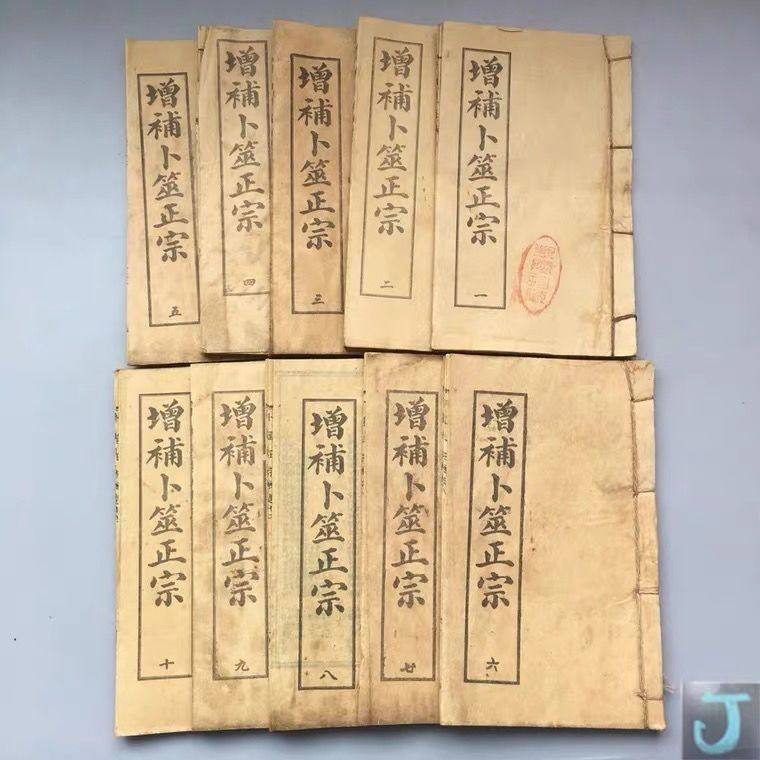 增補卜筮正宗 一
增補卜筮正宗 二
增補卜筮正宗 三
增補卜筮正宗 四
增補卜筮正宗 五
增補卜筮正宗 六
增補卜筮正宗 七
增補卜筮正宗 八
增補卜筮正宗 九
增補卜筮正宗 十
J